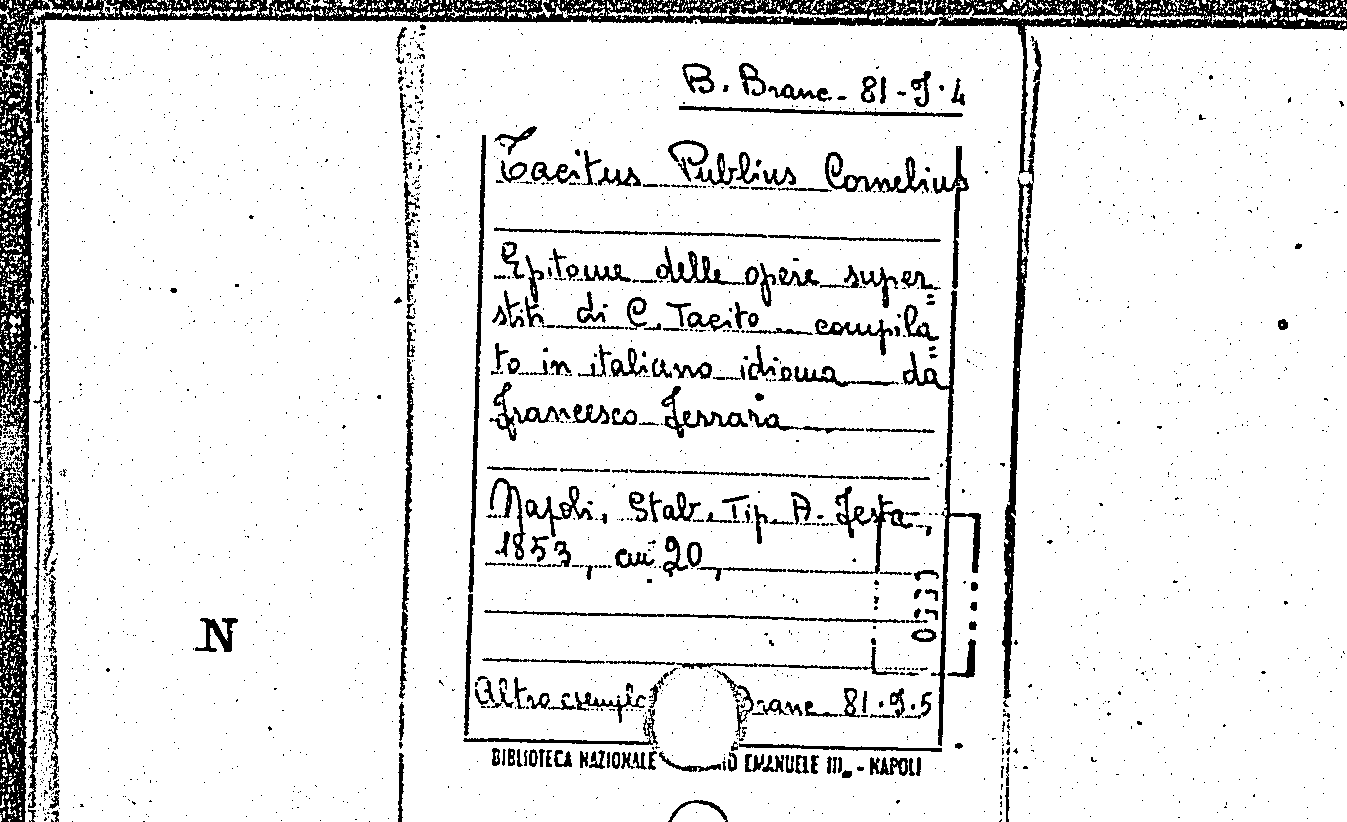 B. Branc. 81-J.4
Tacitus Publius Cornelius
Epitome delle opere super=
stiti di C. Tacito ... compila=
to in italiano idioma ... da
Francesco Ferrara ...
Napoli, Stab. Tip. A. Festa,
1853, in 20,
N
Altro esempl Branc 81.J.5
BIBLIOTECA NAZIONALE EMANUELE III - NAPOLI